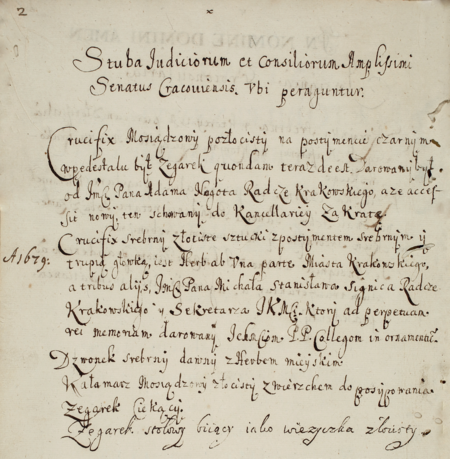 2
Stuba Judiciorum et Consiliorum Amplissimi
Senatus Cracoviensis Vbi peraguntur.
Crucifix Mosiądzowy pozłocisty na postymencie czarnym
wpedestalu był Zegarek quondam teraz deest, Darowany był
od Jmć Pana Adama Nagota Radcze Krakowskiego, aże accessit
nowy, ten schowany do Kancellariey Za Kratę
A 1679. Crucifix srebrny złociste sztucki zpostymentem srebrnym y
trupią główką, iest Herb ab Vna parte Miasta Krakowskiego,
a tribus alijs, Jmć Pana Michala Stanisława Signica Radcze
Krakowskiego y Sekretarza JKMci. Ktory ad perpetuam
rei memoriam darowany P.P. Collegom in ornamentum
Dzwonek srebrny dawny z Herbem mieyskim.
Kałamarz Mosiądzowy złocisty zwierzchem do posypowania
Zegarek Ciekący.
Zegarek stołowy biiący iako wiezyczka złocisty